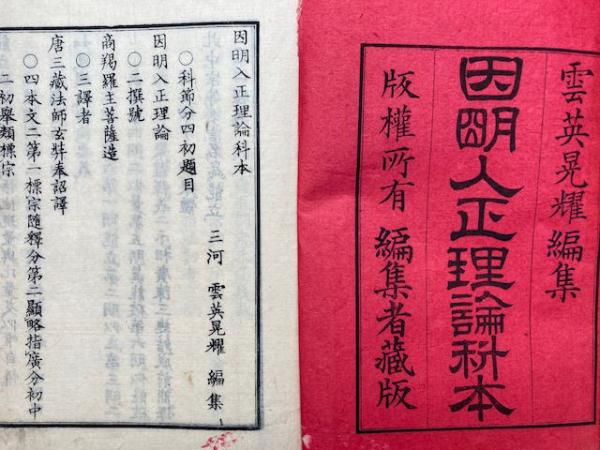 雲英晃耀編集
因明入正理論科本
版權所有 編集者藏版
因明入正理論科本
三河 雲英晃耀 編集
○科節分四初題目
因明入正理論
○二撰號
商羯羅主菩薩造
○三譯者
唐三藏法師玄奘奉詔譯
○四本文二第一標宗隨釋分第二顯略指廣分初中
二初擧類標宗